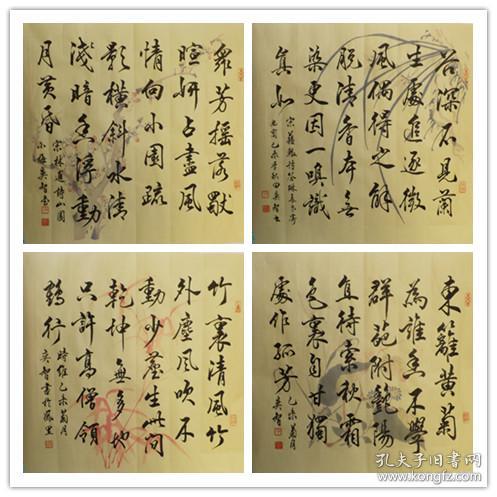 眾芳摇落獨
暄妍占盡風
情向小園疏
影橫斜水清
淺暗香浮動
月黃昏
宋林逋詩山園
小梅奕智書
谷深不見蘭
生處追逐微
風偶得之解
脱清香本無
染更因一嗅識
真如
宋蘇轍詩答琳長老寄
乙未季秋田奕智書
竹裏清風竹
外塵風吹不
動少塵生此間
乾坤無多地
只許高僧領
鶴行
時維乙未菊月
奕智書於里
東籬黃菊
為誰香不學
群葩附艷陽
直待索秋霜
色裏自甘獨
處作孤芳
乙未菊月
奕智
孔夫子旧书网
www.kongfz.com